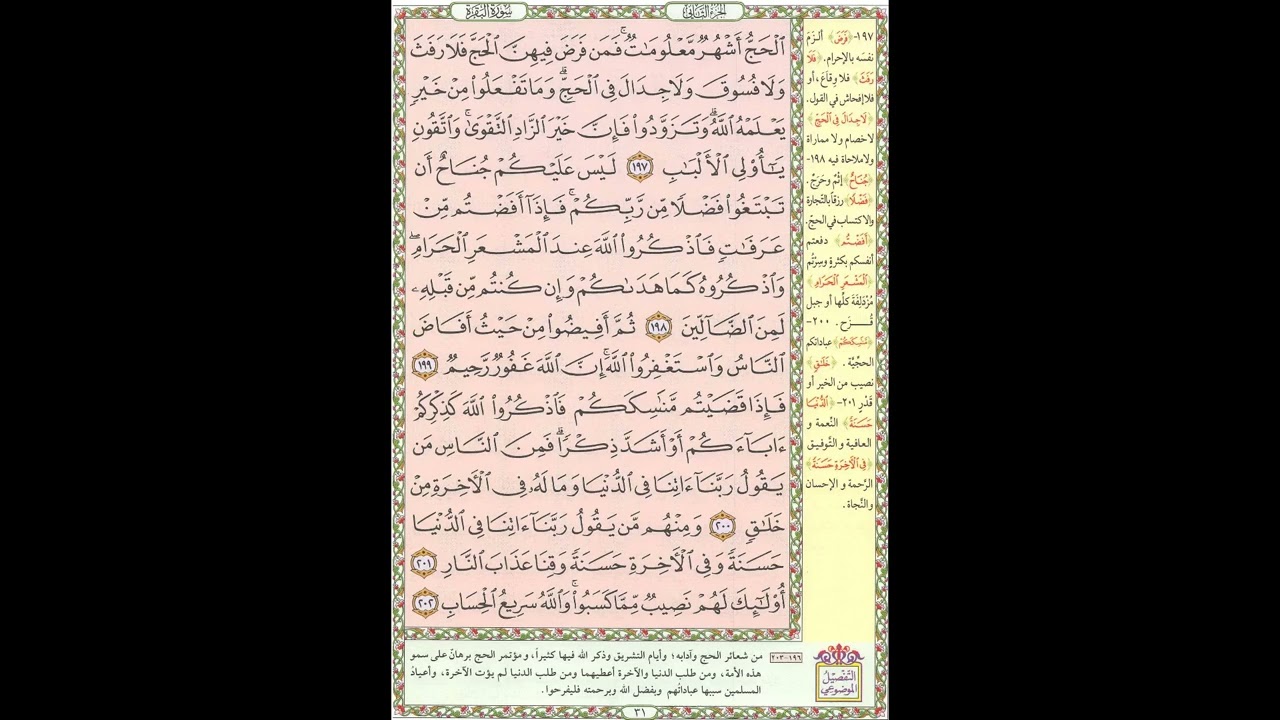 الجزء الثاني
سورة البقرة
ٱلْحَجُّ أَشْهُرٌ مَّعْلُومَٰتٌ ۚ فَمَن فَرَضَ فِيهِنَّ ٱلْحَجَّ فَلَا رَفَثَ
وَلَا فُسُوقَ وَلَا جِدَالَ فِى ٱلْحَجِّ ۗ وَمَا تَفْعَلُوا۟ مِنْ خَيْرٍ
يَعْلَمْهُ ٱللَّهُ ۗ وَتَزَوَّدُوا۟ فَإِنَّ خَيْرَ ٱلزَّادِ ٱلتَّقْوَىٰ ۚ وَٱتَّقُونِ
يَٰٓأُو۟لِى ٱلْأَلْبَٰبِ ١٩٧ لَيْسَ عَلَيْكُمْ جُنَاحٌ أَن
تَبْتَغُوا۟ فَضْلًا مِّن رَّبِّكُمْ ۚ فَإِذَآ أَفَضْتُم مِّنْ
عَرَفَٰتٍ فَٱذْكُرُوا۟ ٱللَّهَ عِندَ ٱلْمَشْعَرِ ٱلْحَرَامِ ۖ
وَٱذْكُرُوهُ كَمَا هَدَىٰكُمْ وَإِن كُنتُم مِّن قَبْلِهِۦ
لَمِنَ ٱلضَّآلِّينَ ١٩٨ ثُمَّ أَفِيضُوا۟ مِنْ حَيْثُ أَفَاضَ
ٱلنَّاسُ وَٱسْتَغْفِرُوا۟ ٱللَّهَ ۚ إِنَّ ٱللَّهَ غَفُورٌ رَّحِيمٌ ١٩٩
فَإِذَا قَضَيْتُم مَّنَٰسِكَكُمْ فَٱذْكُرُوا۟ ٱللَّهَ كَذِكْرِكُمْ
ءَابَآءَكُمْ أَوْ أَشَدَّ ذِكْرًا ۗ فَمِنَ ٱلنَّاسِ مَن
يَقُولُ رَبَّنَآ ءَاتِنَا فِى ٱلدُّنْيَا وَمَا لَهُۥ فِى ٱلْءَاخِرَةِ مِنْ
خَلَٰقٍ ٢٠٠ وَمِنْهُم مَّن يَقُولُ رَبَّنَآ ءَاتِنَا فِى ٱلدُّنْيَا
حَسَنَةً وَفِى ٱلْءَاخِرَةِ حَسَنَةً وَقِنَا عَذَابَ ٱلنَّارِ ٢٠١
أُو۟لَٰٓئِكَ لَهُمْ نَصِيبٌ مِّمَّا كَسَبُوا۟ ۚ وَٱللَّهُ سَرِيعُ ٱلْحِسَابِ ٢٠٢
١٩٧- ﴿فَرَضَ﴾ ألزَمَ
نفسَه بالإحرام. ﴿فَلَا
رَفَثَ﴾ فلا وِقاعَ، أو
فلا إفحاش في القول.
﴿لَا جِدَالَ فِى ٱلْحَجِّ﴾
لا خصام ولا مماراة
ولا ملاحاة فيه ١٩٨-
﴿جُنَاحٌ﴾ إثمٌ وحَرَجٌ.
﴿فَضْلًا﴾ رزقاً بالتّجارة
والاكتساب في الحجّ.
﴿أَفَضْتُم﴾ دفعتم
أنفسكم بكثرةٍ وسِرْتُم
﴿ٱلْمَشْعَرِ ٱلْحَرَامِ﴾
مُزدَلِفَةَ كلّها أو جبل
قُزَح. ٢٠٠-
﴿مَّنَٰسِكَكُمْ﴾ عباداتكم
الحجِّيَّة. ﴿خَلَٰقٍ﴾
نصيب من الخير أو
قَدْرٍ ٢٠١- ﴿ٱلدُّنْيَا
حَسَنَةً﴾ النّعمة و
العافية و التّوفيق
﴿فِى ٱلْءَاخِرَةِ حَسَنَةً﴾
الرّحمة و الإحسان
والنَّجاة.
التفصيل
الموضوعي
١٩٦-٢٠٣ من شعائر الحج وآدابه؛ وأيام التشريق وذكر الله فيها كثيراً، ومؤتمر الحج برهانٌ على سمو
هذه الأمة، ومن طلب الدنيا والآخرة أعطيهما ومن طلب الدنيا لم يؤت الآخرة، وأعيادُ
المسلمين سببها عباداتهم وبفضل الله وبرحمته فليفرحوا.
٣١